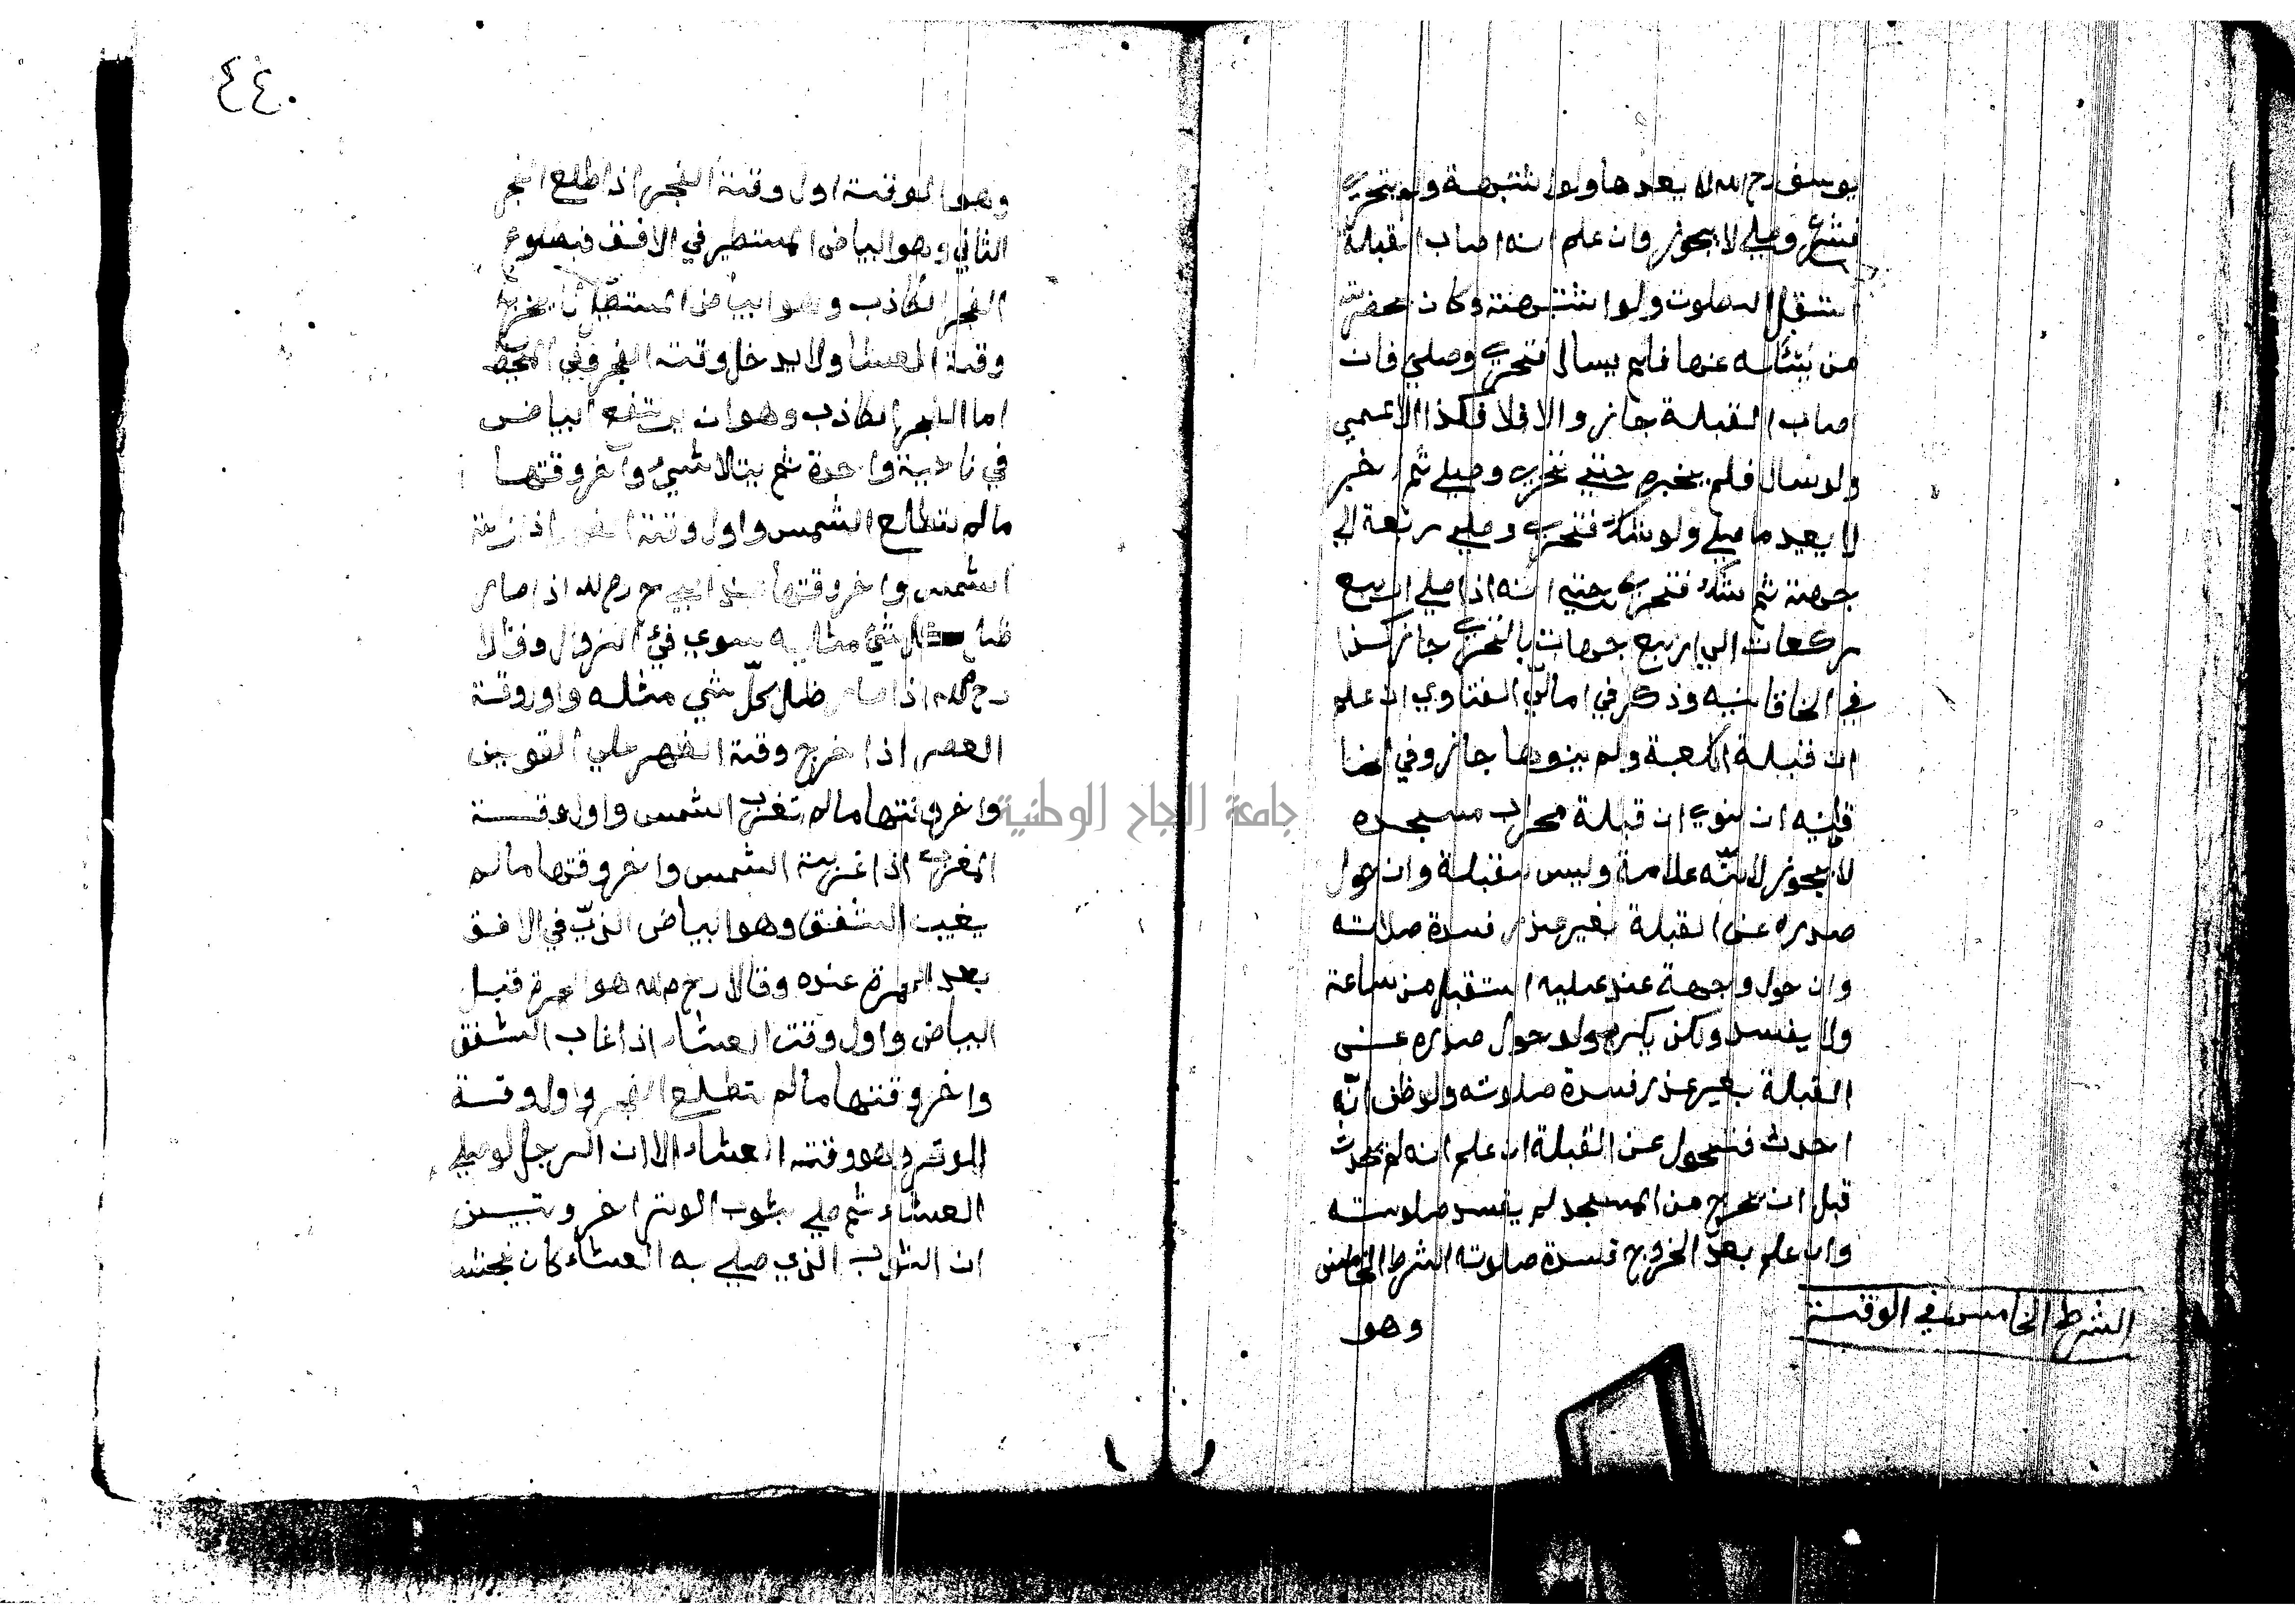 يوسف رح الله لا يعدها ولو اشتبهة ولم يتحرى
فشرع وصلي لا يجوز وان علم انه اصاب القبلة
استقبل الصلوت ولو اشتبهة وكان بحضرته
من يسأله عنها فلم يسال فتحرى وصلي فان
اصاب القبلة جاز والا فلا فكذا الاعمي
ولو سال فلم يخبره حتي تحرى وصلي ثم اخبر
لا يعيد ما صلي ولو شك فتحرى وصلي ركعة الي
جهة ثم شك فتحرى حتي انه اذا صلي اربع
ركعات الي اربع جهات بالتحرى جاز كذا
في الخاقانيه وذكر في امالي الفتاوي ان علم
ان قبلة الكعبة ولم ينوها جاز وفي الخا
قانيه ان نوي ان قبلة محراب مسجده
لا يجوز لانه علامة وليس بقبلة وان حول
صدره عن القبلة بغير عذر فسدة صلاته
وان حول وجهة عند عليه استقبل من ساعة
ولا يفسد ولكن يكره ولو حول صدره عن
القبلة بغير عذر فسدة صلوته ولو ظن انّه
احدث فتحول عن القبلة ان علم انه لم يحدث
قبل ان يخرج من المسجد لم يفسد صلوته
وان علم بعد الخروج فسدة صلوته الشرط الخامس
الشرط الخامس في الوقتة
وهو
٤٤٠
وهو الوقتة اول وقتة الفجر اذا طلع الفجر
الثاني وهو البياض المستطير في الافق فبطلوع
الفجر الكاذب وهو البياض المستطيل لا يخرج
وقتة العشا ولا يدخل وقتة الفجر وفي المحيط
اما الفجر الكاذب وهو ان يرتفع البياض
في ناحية واحدة ثم يتلاشي وآخر وقتها
مالم تطلع الشمس واول وقتة الظهر اذا زالة
الشمس واخر وقتها عند ابي ح رح الله اذا صار
ظل كل شيء مثليه سوي فيء الزوال وقالا
رح الله اذا صار ظل كلّ شي مثله واوروقتة
العصر اذا خرج وقتة الظهر علي القولين
واخر وقتها مالم تغرب الشمس واول وقتة
المغرب اذا غربة الشمس واخر وقتها مالم
يغيب الشفق وهو البياض الذيّ في الافق
بعد الحمرة عنده وقالا رح الله هو الحمرة قبل
البياض واول وقت العشاء اذا غاب الشفق
واخر وقتها مالم تطلع الفجر واول وقتة
الوتر وهو وقتة العشاء الا ان الرجل لو صلي
العشاء ثم صلي بثوب الوتر اخر وتبين
ان الثوب الذي صلي به العشاء كان نجسا
جامعة النجاح الوطنية